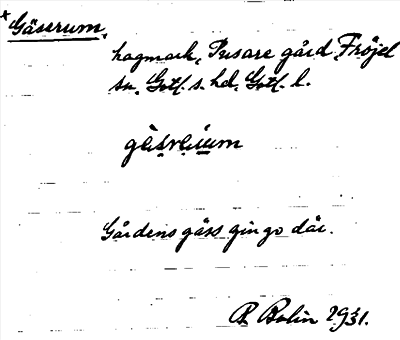 × Gäserum,
hagmark, Pusare gård Fröjel
sn, Gotl. s. hd, Gotl. l.
Gårdens gäss gingo där.
R. Bolin 1931.